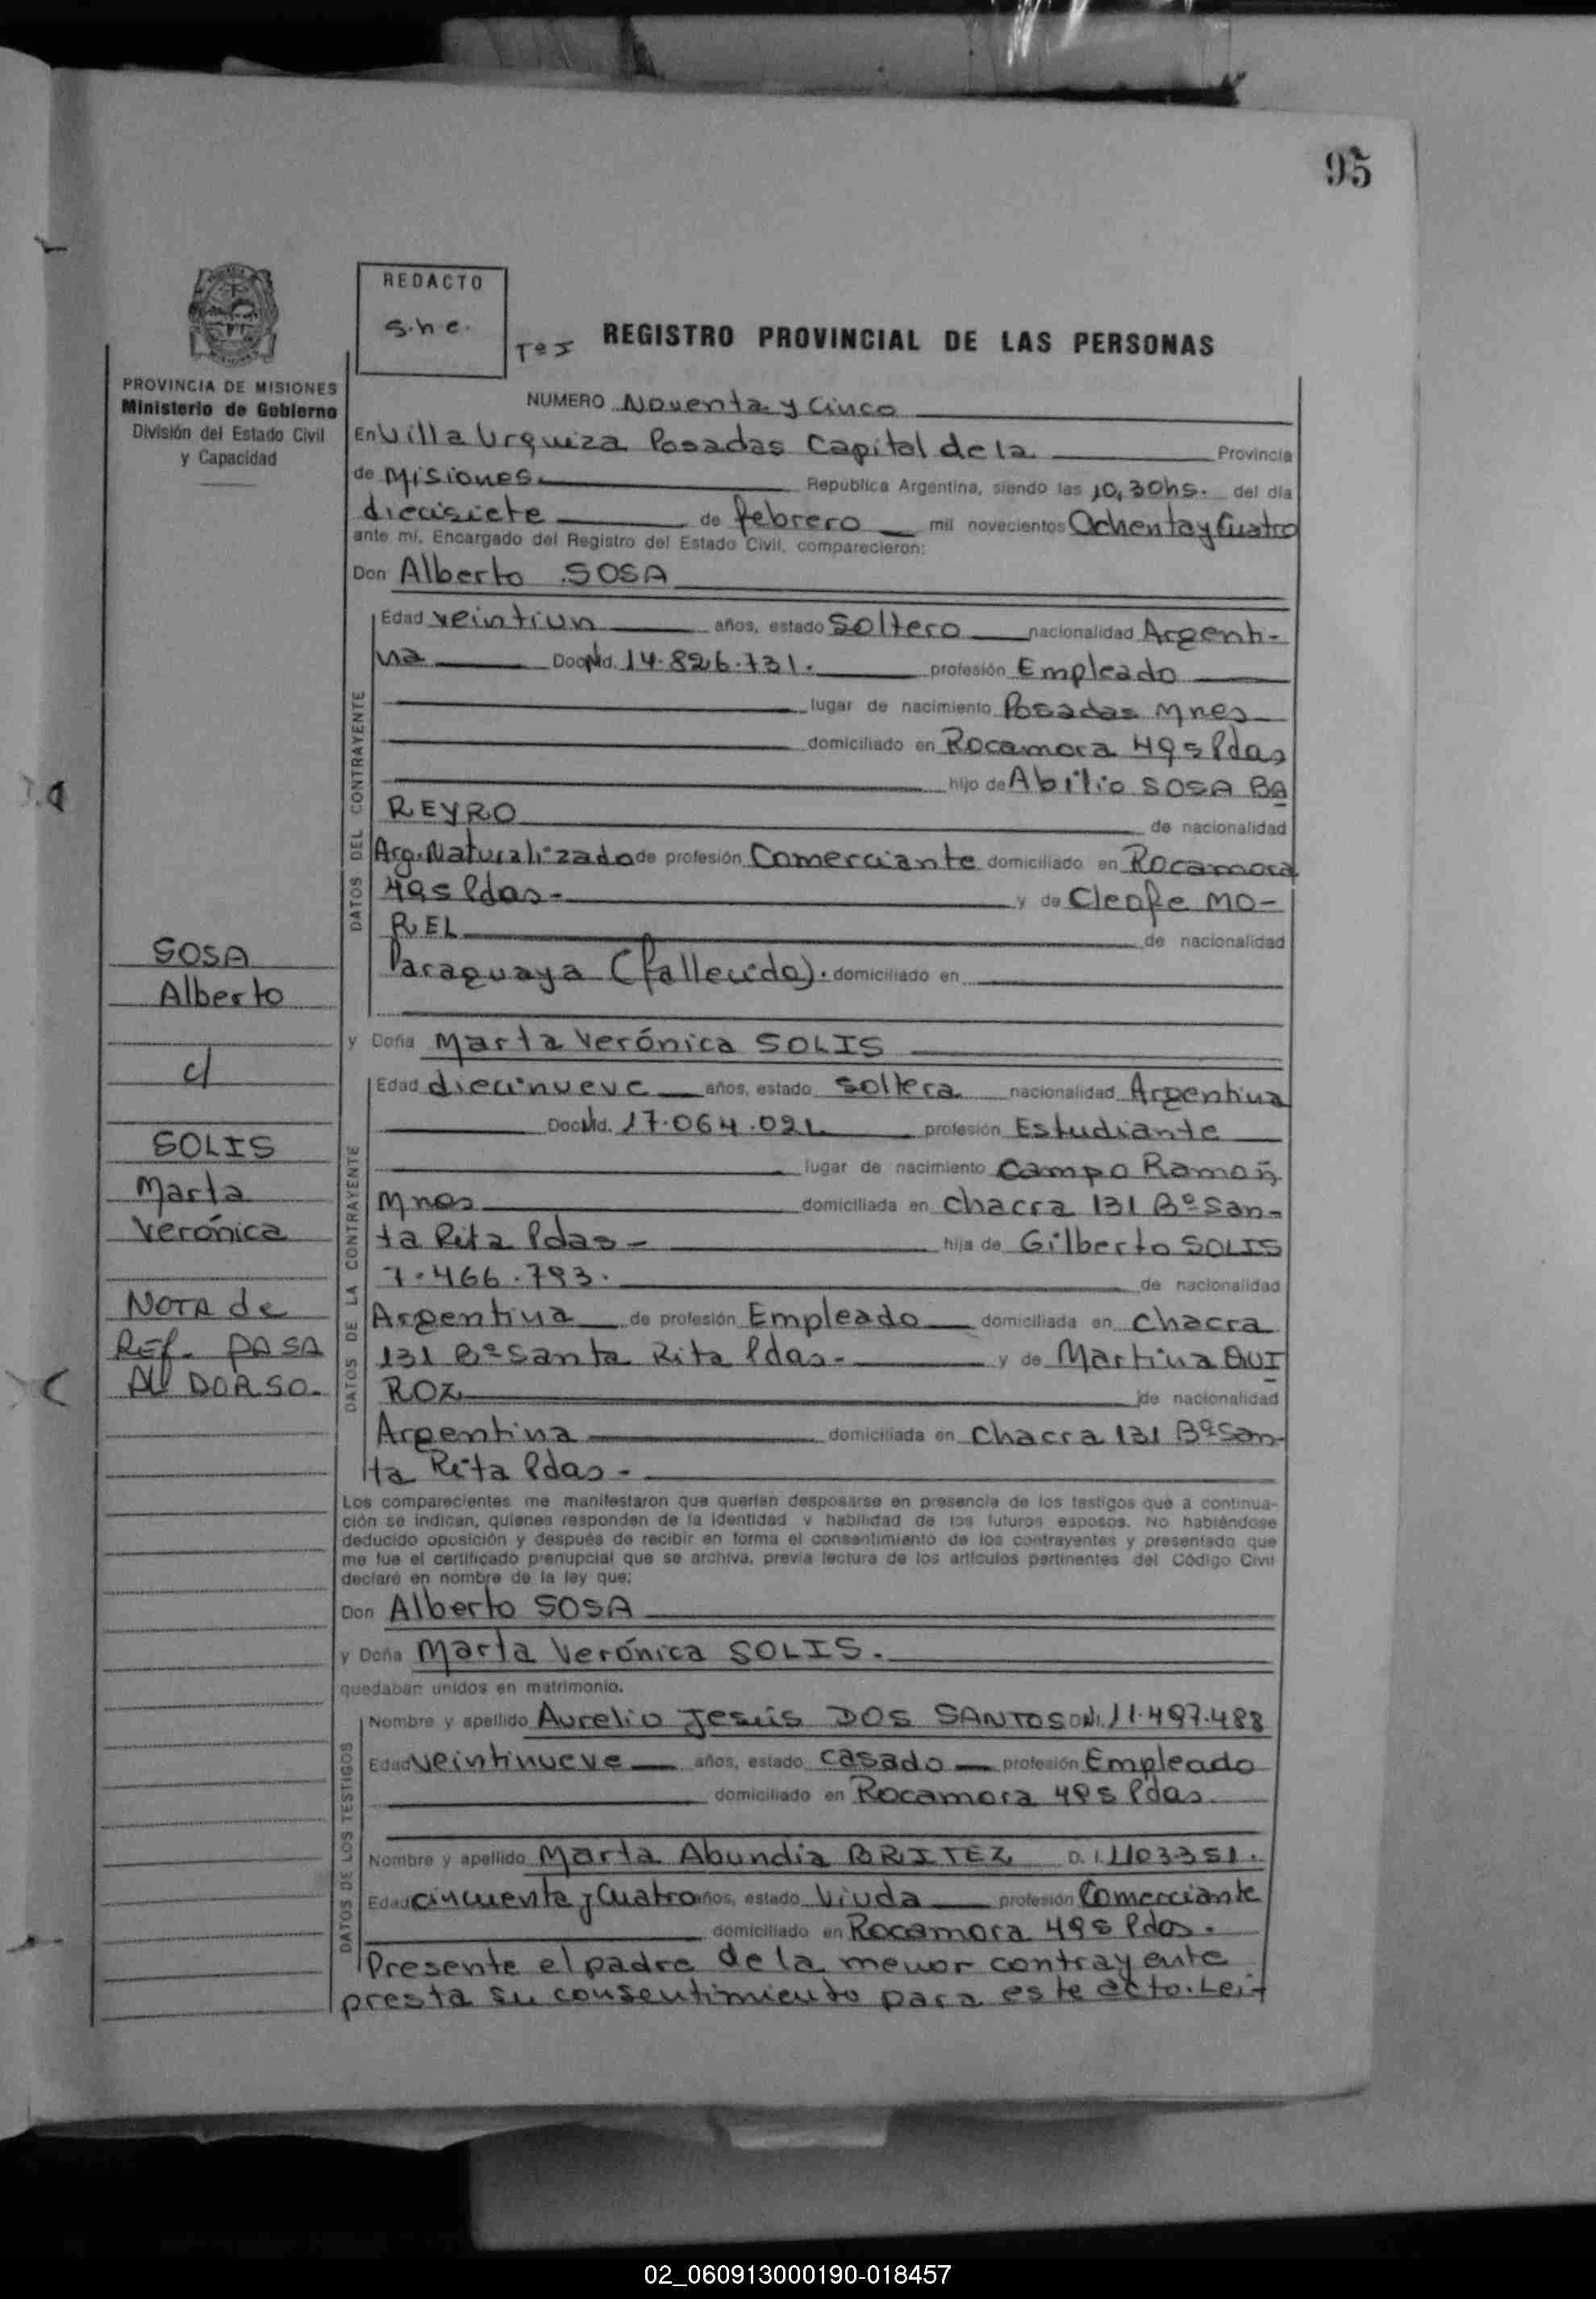 95
REDACTO
s.h.e.
REGISTRO PROVINCIAL DE LAS PERSONAS
PROVINCIA DE MISIONES
Ministerio de Gobierno
División del Estado Civil
y Capacidad
NUMERO Noventa y Cinco
En Villa Urquiza Posadas Capital de la Provincia
de Misiones. República Argentina, siendo las 10,30hs. del día
diecisiete de febrero mil novecientos Ochenta y Cuatro
ante mí, Encargado del Registro del Estado Civil, comparecieron:
Don Alberto SOSA
DATOS DEL CONTRAYENTE
Edad veintiun años, estado Soltero nacionalidad Argenti-
na Doc. 14.826.731. profesión Empleado
lugar de nacimiento Posadas Mnes
domiciliado en Rocamora 495 Pdas
hijo de Abilio SOSA BA
REYRO de nacionalidad
Arg. Naturalizado de profesión Comerciante domiciliado en Rocamora
495 Pdas- y de Cleofe MO-
REL de nacionalidad
Paraguaya (fallecida). domiciliado en
y Doña Marta Verónica SOLIS
DATOS DE LA CONTRAYENTE
Edad diecinueve años, estado Soltera nacionalidad Argentina
Doc. 17.064.021 profesión Estudiante
lugar de nacimiento Campo Ramón
Mnes domiciliada en Chacra 131 Bº San-
ta Rita Pdas- hija de Gilberto SOLIS
7.466.793. de nacionalidad
Argentina de profesión Empleado domiciliada en Chacra
131 Bº Santa Rita Pdas- y de Martina QUI
ROZ de nacionalidad
Argentina domiciliada en Chacra 131 Bº San-
ta Rita Pdas-
SOSA
Alberto
c/
SOLIS
Marta
Verónica
NOTA de
REf. PASA
AL DORSO.
Los comparecientes me manifestaron que querían desposarse en presencia de los testigos que a continua-
ción se indican, quienes responden de la identidad y habilidad de los futuros esposos. No habiéndose
deducido oposición y después de recibir en forma el consentimiento de los contrayentes y presentado que
me fue el certificado prenupcial que se archiva, previa lectura de los artículos pertinentes del Código Civil
declaré en nombre de la ley que:
Don Alberto SOSA
y Doña Marta Verónica SOLIS.
quedaban unidos en matrimonio.
DATOS DE LOS TESTIGOS
Nombre y apellido Aurelio Jesús DOS SANTOS DNI. 11.497.488
Edad veintinueve años, estado casado profesión Empleado
domiciliado en Rocamora 495 Pdas.
Nombre y apellido Marta Abundia BRITEZ D.I. 1103351.
Edad cincuenta y Cuatro años, estado Viuda profesión Comerciante
domiciliado en Rocamora 495 Pdas.
Presente el padre de la menor contrayente
presta su consentimiento para este acto. Leí-
02_060913000190-018457